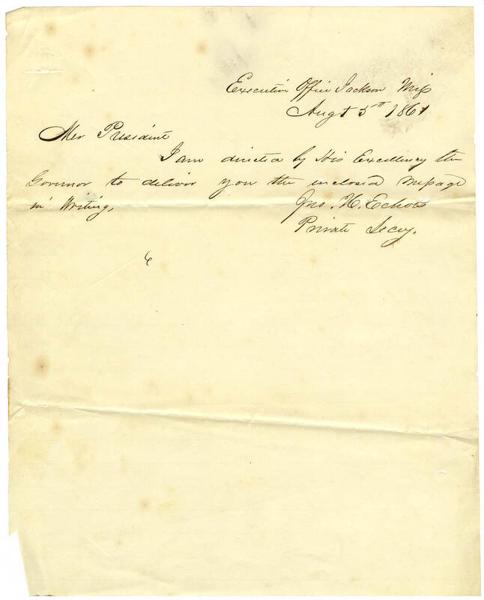 Executive Office Jackson Miss
Augt 5th 1861
Mr President
I am directed by His Excellency the
Governor to deliver you the inclosed message
in Writing,
Jno. H. Echols
Private Secy.